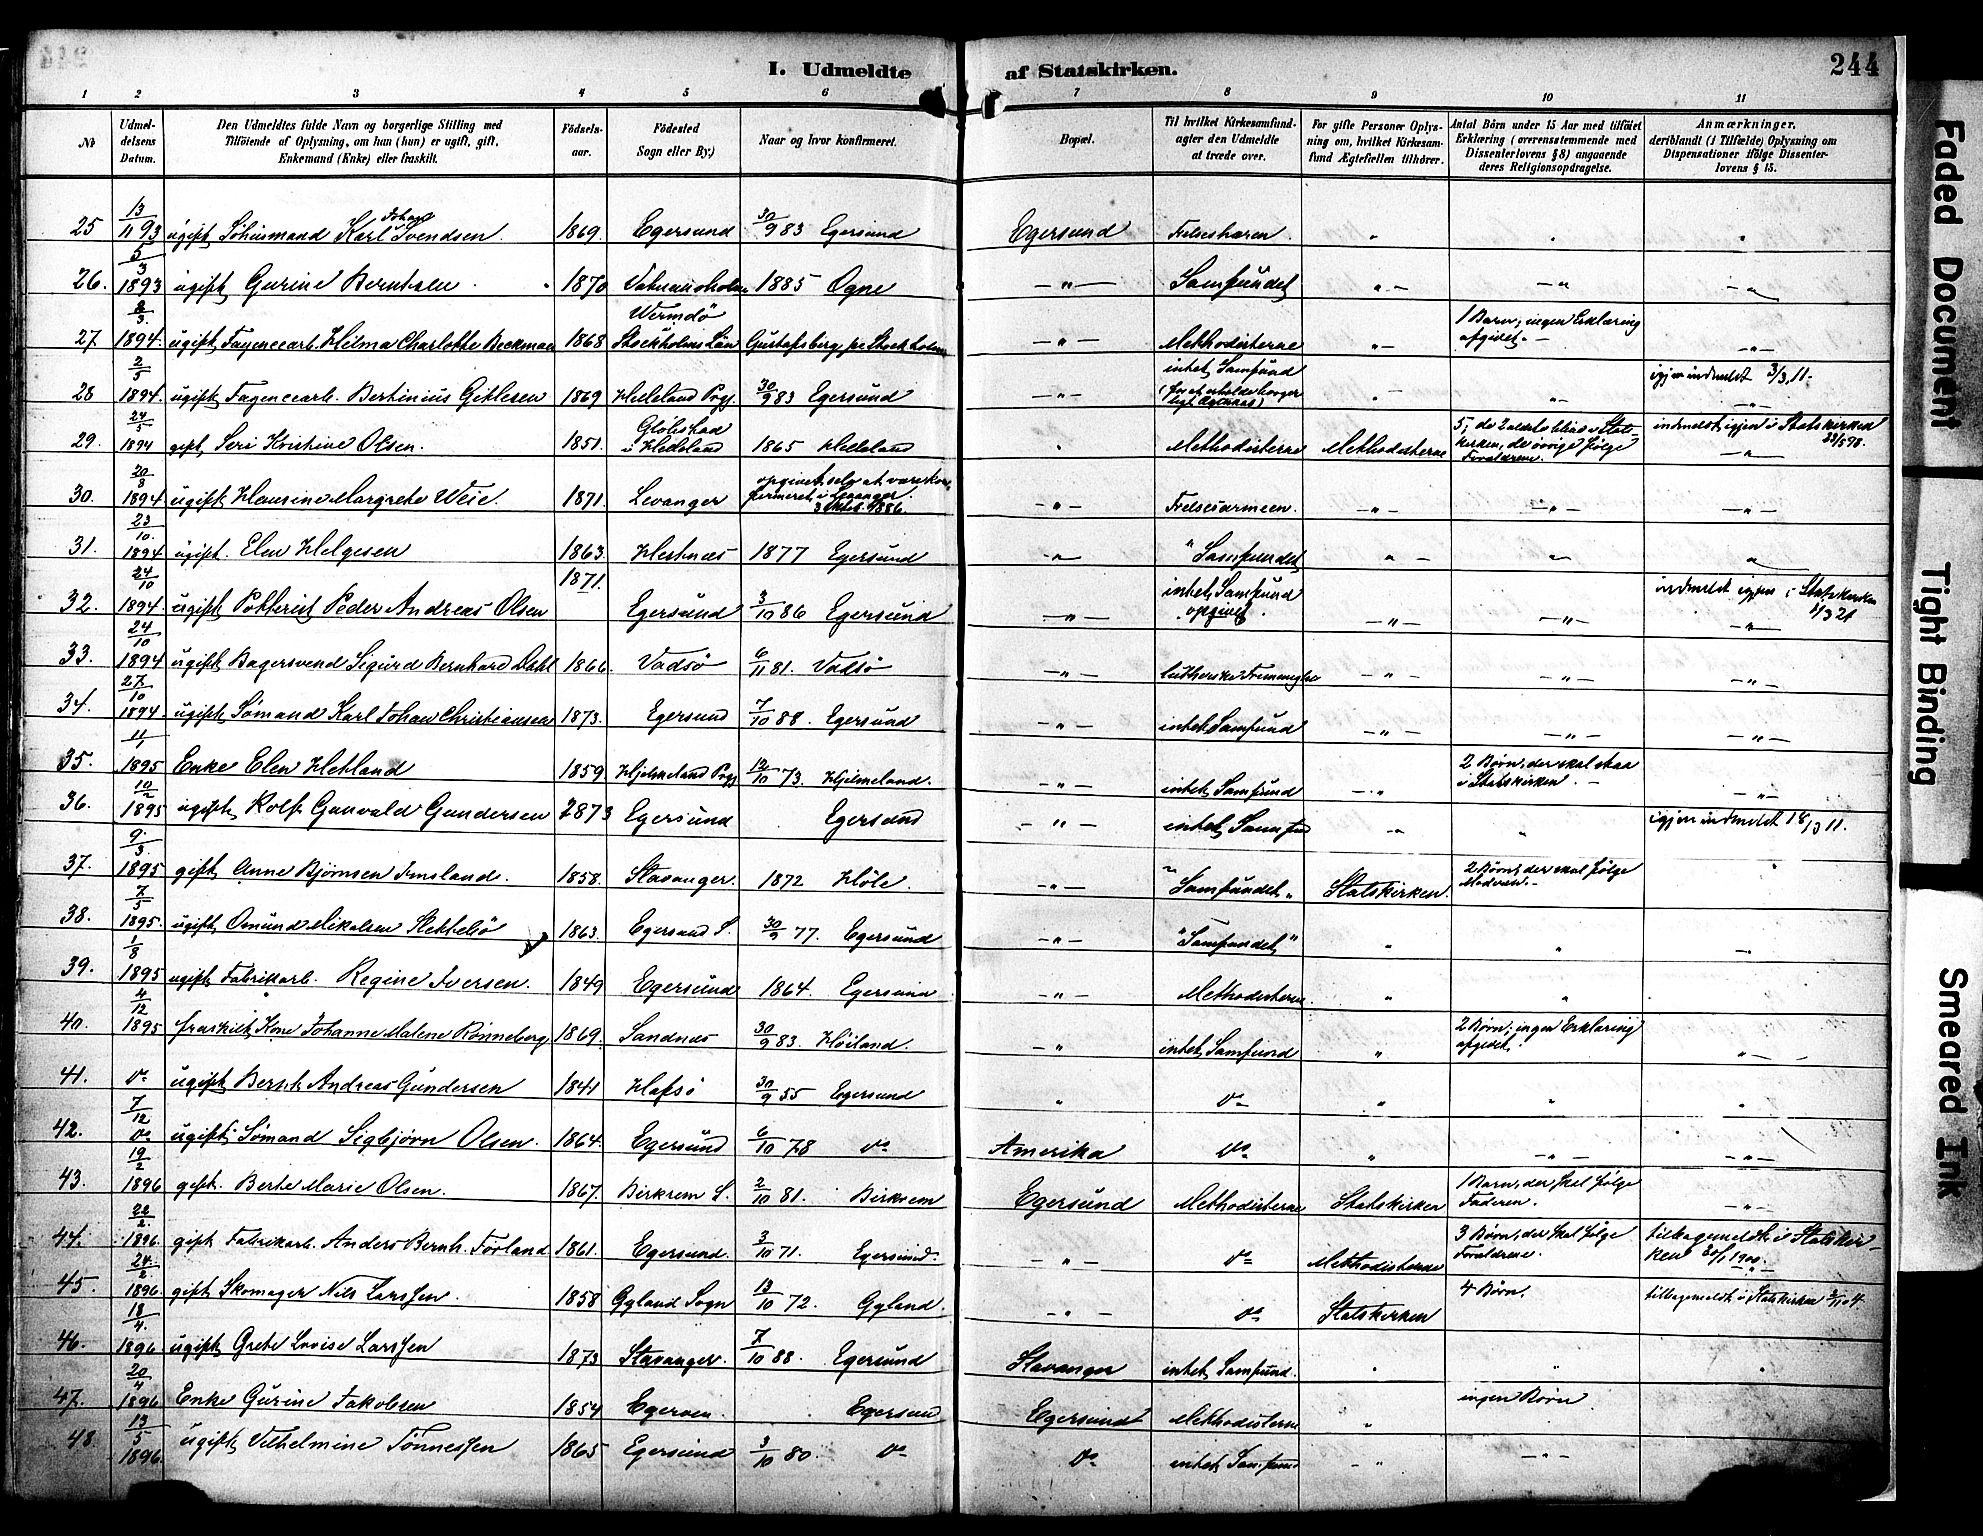 244
I. Udmeldte af Statskirken.
1 2 3 4 5 6 7 8 9 10 11
№
Udmel-
delsens
Datum.
Den Udmeldtes fulde Navn og borgerlige Stilling med
Tilföiende af Oplysning, om han (hun) er ugift, gift,
Enkemand (Enke) eller fraskilt.
Födsels-
aar.
Födested
Sogn eller By.)
Naar og hvor konfirmeret.
Bopæl.
Til hvilket Kirkesamfund-
agter den Udmeldte
at træde over.
For gifte Personer Oplys-
ning om, hvilket Kirkesam-
fund Ægtefællen tilhörer.
Antal Börn under 15 Aar med tilföiet
Erklæring (overensstemmende med
Dissenterlovens § 8) angaaende
deres Religionsopdragelse.
Anmærkninger,
deriblandt (i Tilfælde) Oplysning om
Dispensationer ifölge Dissenter-
lovens § 15.
25 13/11 93 ugift Karl Johan Svendsen. 1869. Egersund 30/9 83 Egersund Egersund Frelseshæren. " " "
26. 5/3 1893 ugift Gurine Berntsen 1870 1885 Ogne — " — Samfundet " — — " — "
27 8/3. 1894. ugift Fayencearb. Hilma Charlotte Beckman 1868 Wermdö Stockholms Län Gustafsberg pr Stockholm — " — Methodisterne " — 1 Barn; ingen Erklæring afgivet. — — " —
28 2/5 1894. ugift Fayencearb. Bertinius Gitlesen 1869 Helleland Prgj. 30/9 83 Egersund — " — intet Samfund (for at erholde borgerligt ) " " — igjen indmeldt 3/3 11. — " —
29. 24/5 1894 gift Seri Kristine Olsen. 1851. i Helleland 1865 Helleland " Methodisterne Methodisterne 5; de 2 ældste blive i Statskirken, de övrige fölge Forældrene. indmeldt igjen i Statskirken 98. — " —
30. 20/8 1894 ugift Hansine Margrete Weie. 1871. Levanger opgivet selv at være konfirmeret i Levanger 3 Oktob. 1886. — " — Frelsesarmeen. — " — — " — — " —
31. 23/10. 1894 ugift. Elen Helgesen 1863. Hestnes 1877 Egersund — " — "Samfundet " — — " — "
32. 24/10 1894 ugift Potterist Peder Andreas Olsen 1871. Egersund 3/10 86 Egersund — " — intet Samfund opgivet. — " — — " — indmeldt igjen i Statskirken 21 — " —
33. 24/10 1894 ugift Bagersvend Sigurd Bernhard Dahl 1866. Vadsö 6/11 81. Vadsö — " — lutherske Frimenighe — " — — " — — " —
34. 27/10 1894 ugift Sömand Karl Johan Christiansen 1873. Egersund 7/10 88. Egersund — " — intet Samfund — " — — " — — " —
35. 11/1 1895 Enke Elen Hetland 1859 Hjelmeland Prgj 12/10 73. Hjelmeland. — " — intet Samfund — " 2 Börn, der skal staa i Statskirken. — — " —
36. 10/2 1895 ugift Rolf Gunvald Gundersen 2873 Egersund Egersund — " — intet Samfund — " " igjen indmeldt 18/3 11.
37. 9/3. 1895 gift Anne Björnsen Imsland. 1858. Stavanger. 1872 Höle. — " — "Samfundet" Statskirken. 2 Börn, der skal fölge Moderen. — "
38. 7/5 1895. ugift Omund Mikalsen 1863. Egersund S. 30/9 77. Egersund — " — "Samfundet" " " — "
39. 1/8 1895 ugift Fabrikarb. Regine Iversen. 1849 Egersund 1864. Egersund — " — Methodisterne " "
40. 4/12 1895 fraskilt Kone Johanne Malene Rönneberg 1869. Sandnes 30/9 83. Höiland. — " intet Samfund " 2 Börn; ingen Erklæring afgivet. " — —
41. do ugift Bernt Andreas Gundersen 1841 Hafsö 30/9 55 Egersund " do " " "
42. 7/12 do ugift Sömand Sigbjörn Olsen. 1864. Egersund 6/10 78 do Amerika do " — " — — " —
43. 19/2 1896 gift. Berte Marie Olsen. 1867. Birkrem S. 2/10 81. Birkrem Egersund Methodisterne Statskirken 1 Barn, der skal fölge Faderen. — " —
44. 22/2 1896 gift Fabrikarb. Anders Bernh. Förland 1861. Egersund. 3/10 71. Egersund. " " do Methodisterne 3 Börn, der skal fölge Forældrene. tilbagemeldt i Statskirken 20/1 1900. "
45. 24/2 1896. gift Skomager Nils Larssen. 1858 Gyland Sogn 13/10 72. Gyland. — " — do Statskirken 4 Börn. tilbagemeldt i Statskirken 04.
46. 18/4. 1896 ugift Grete Lovise Larssen 1873 Stavanger. 7/10 88. Egersund Stavanger intet Samfund. " " "
47. 20/4 1896 Enke Gurine Jakobsen 1854 Egeröen. Egersund Egersund Methodisterne " ingen Börn.
48. 13/5 1896. ugift Vilhelmine Tönnessen 1865 Egersund 3/10 80. do do intet Samfund — " — " —
Faded Document
Tight Binding
Smeared Ink